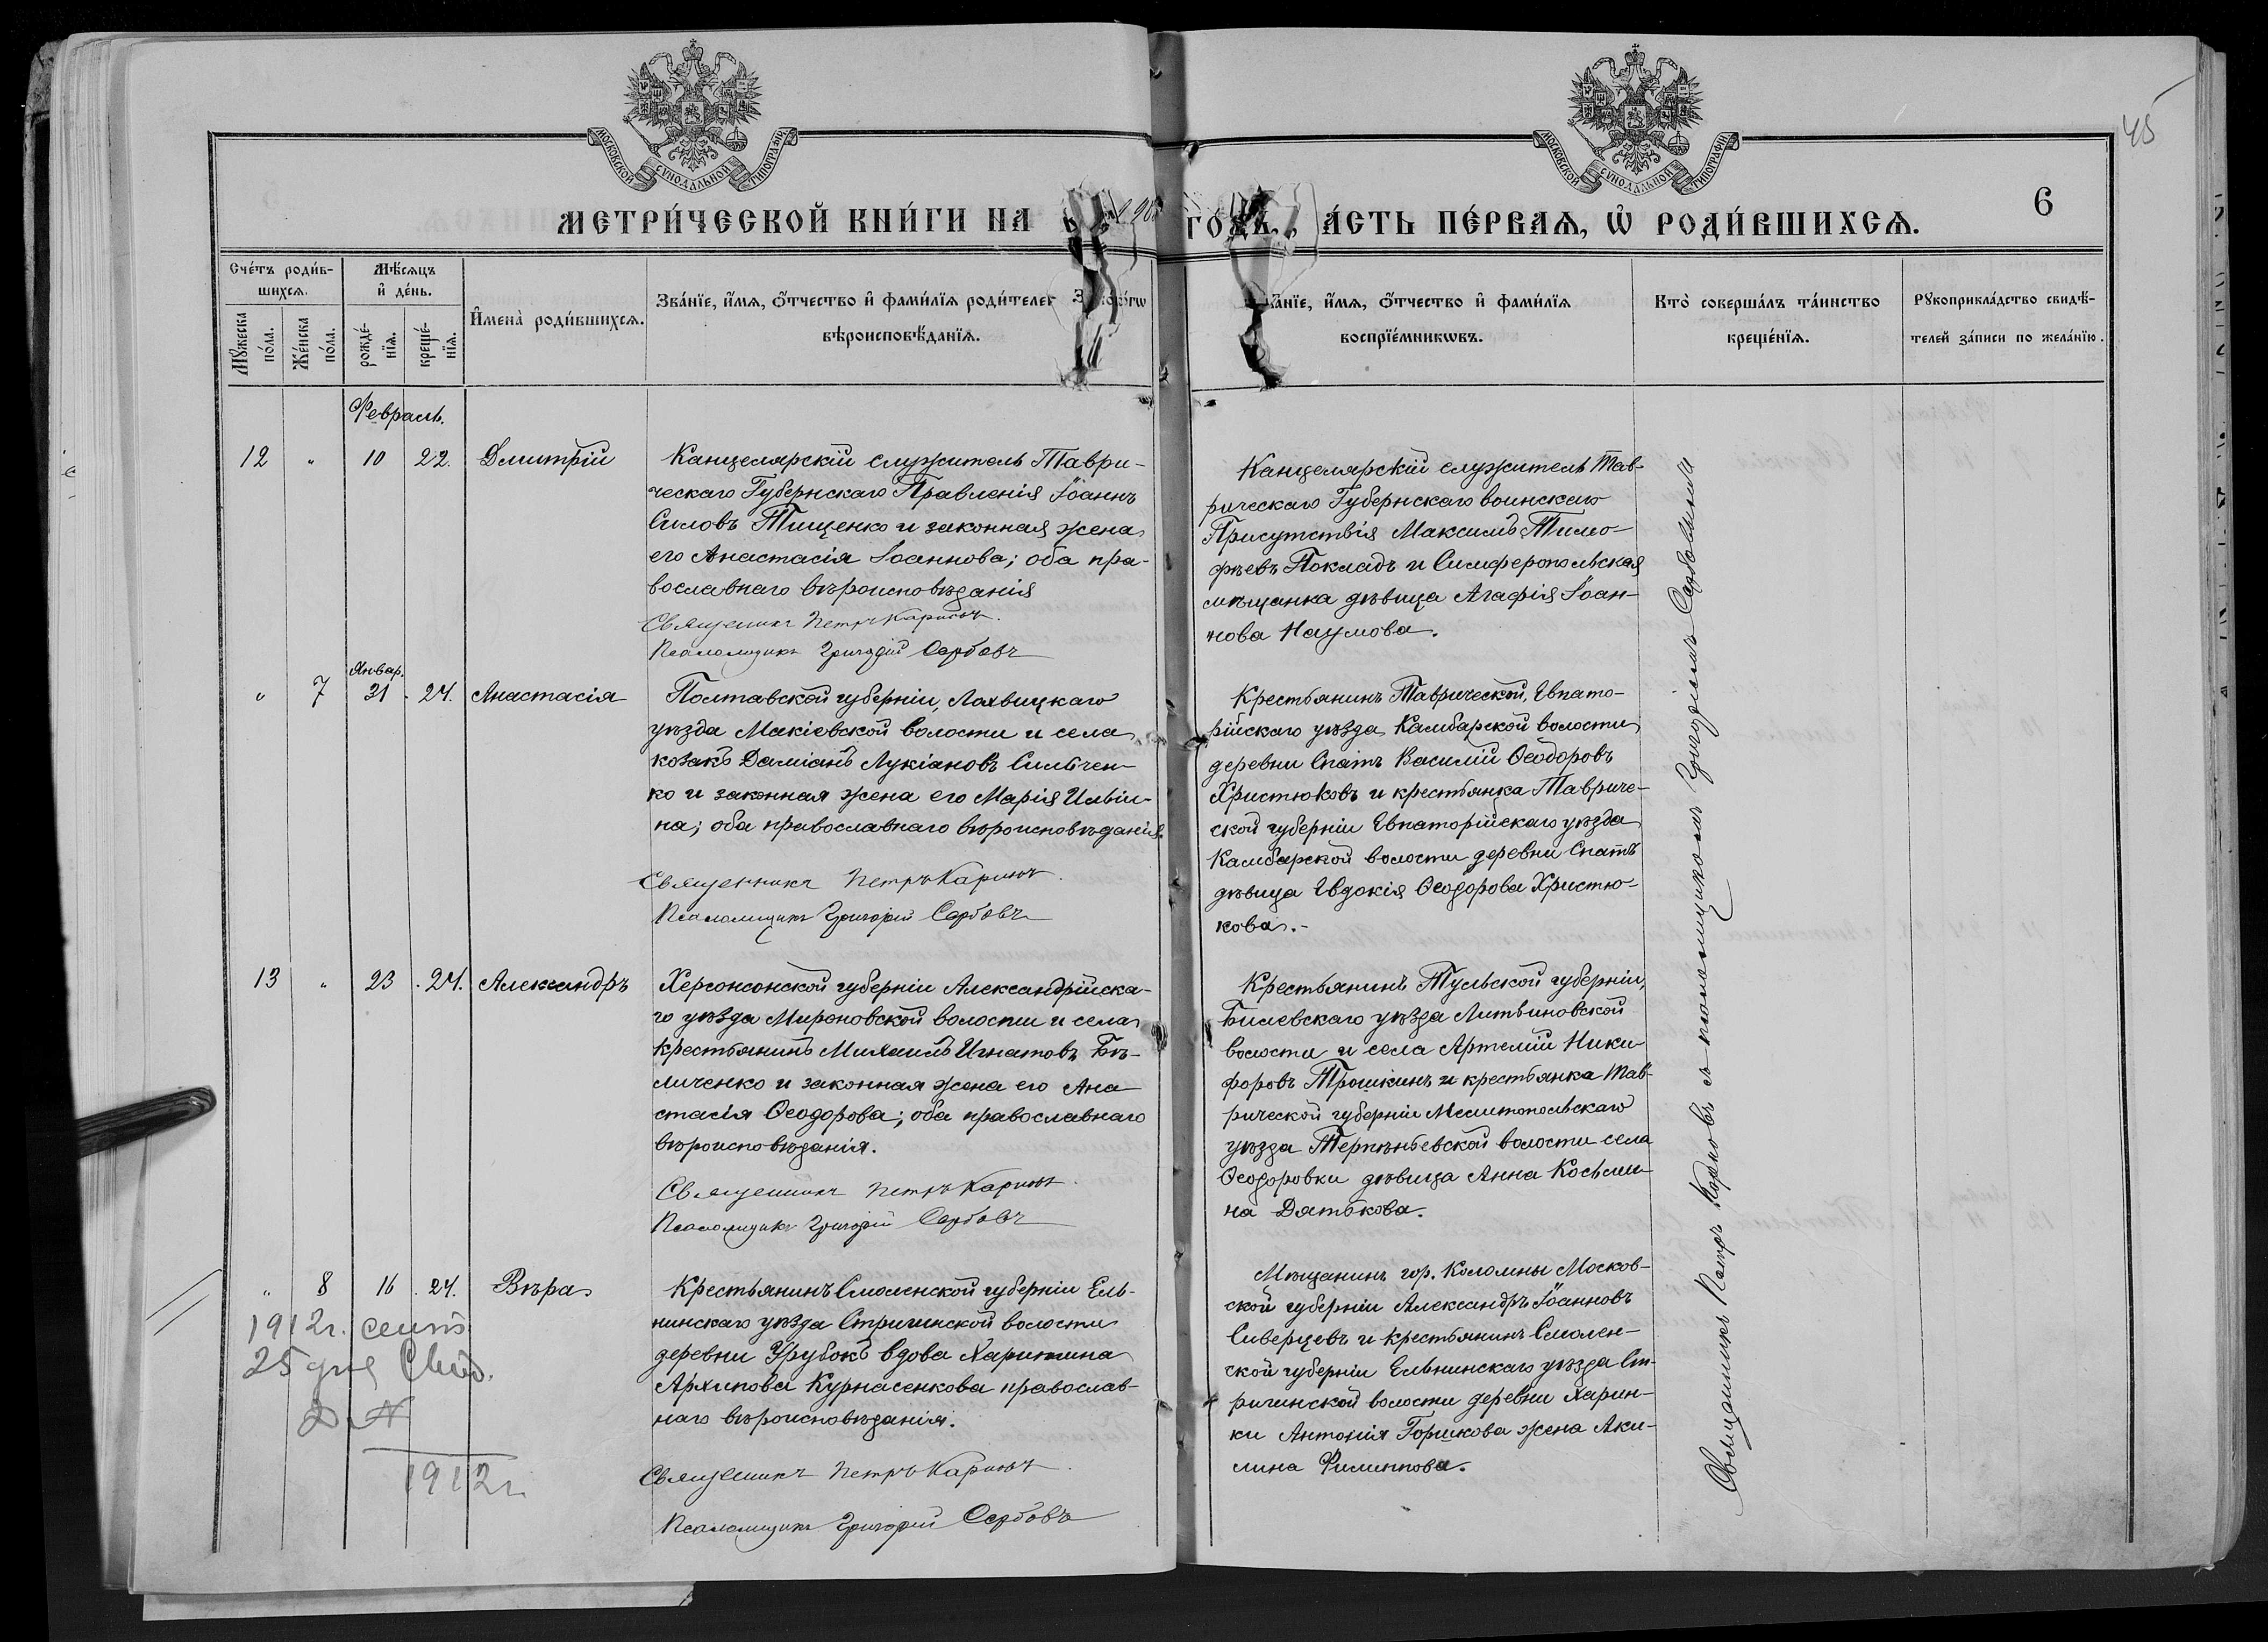 МОСКОВСКОЙ СУНОДАЛЬНОЙ ТИПОГРАФІИ
МОСКОВСКОЙ СУНОДАЛЬНОЙ ТИПОГРАФІИ
45
6
МЕТРИ́ЧЕСКОЙ КНИ́ГИ НА
ГОДЪ, А́СТЬ ПЕ́РВАѦ, Ѡ҆ РОДИ́ВШИХСѦ.
Сче́тъ роди́в-
шихсѧ.
Мꙋ́жеска по́ла.
Же́нска по́ла.
Мѣ́сѧцъ
и҆ де́нь.
рожде́-
нїѧ.
креще́-
нїѧ.
И҆мена̀ роди́вшихсѧ.
Зва́нїе, и҆́мѧ, ѻ҆́тчество и҆ фами́лїѧ роди́телей
вѣроисповѣ́данїѧ.
и҆́мѧ, ѻ҆́тчество и҆ фами́лїѧ
воспрїе́мникѡвъ.
Кто̀ соверша́лъ та́инство
креще́нїѧ.
Рꙋкоприкла́дство свидѣ́-
телей за́писи по жела́нїю.
Февраль.
12 " 10 22. Дмитрій
Канцелярскій служитель Таври-
ческаго Губернскаго Правленія Іоаннъ
Силовъ Тищенко и законная жена
его Анастасія Іоаннова; оба пра-
вославнаго вѣроисповѣданія
Священникъ Петръ Каринъ
Псаломщикъ Григорій Сербовъ
Канцелярскій служитель Тав-
рическаго Губернскаго воинскаго
Присутствія Максимъ Тимо-
фѣевъ Покладъ и Симферопольская
мѣщанка дѣвица Агафія Іоан-
нова Наумова.
Январ.
" 7 31 24. Анастасія
Полтавской губерніи, Лохвицкаго
уѣзда Макіевской волости и села
козакъ Даміанъ Лукіановъ Сильчен-
ко и законная жена его Марія Ильи-
на; оба православнаго вѣроисповѣданія.
Священникъ Петръ Каринъ
Псаломщикъ Григорій Сербовъ
Крестьянинъ Таврической, Евпато-
рійскаго уѣзда Камбарской волости
деревни Спатъ Василій Ѳеодоровъ
Христюковъ и крестьянка Тавриче-
ской губерніи Евпаторійскаго уѣзда
Камбарской волости деревни Спатъ
дѣвица Евдокія Ѳеодорова Христю-
кова.-
13 " 23 24. Александръ
Херсонсонской губерніи Александрійска-
го уѣзда Мироновской волости и села
крестьянинъ Михаилъ Игнатовъ Бѣ-
личенко и законная жена его Ана-
стасія Ѳеодорова; оба православнаго
вѣроисповѣданія.
Священникъ Петръ Каринъ
Псаломщикъ Григорій Сербовъ
Крестьянинъ Тульской губерніи,
Билевскаго уѣзда Литвиновской
волости и села Артемій Ники-
форовъ Трошкинъ и крестьянка Тав-
рической губерніи Мелитопольскаго
уѣзда Терпѣньевской волости села
Ѳеодоровки дѣвица Анна Косьми-
на Дятькова.
" 8 16 24. Вѣра
Крестьянинъ Смоленской губерніи Ель-
нинскаго уѣзда Стригинской волости
деревни Урубокъ вдова Харитина
Архипова Курнасенкова православ-
наго вѣроисповѣданія.
Священникъ Петръ Каринъ
Псаломщикъ Григорій Сербовъ
Мѣщанинъ гор. Коломны Москов-
ской губерніи Александръ Іоанновъ
Сиверцевъ и крестьянинъ Смолен-
ской губерніи Ельнинскаго уѣзда Ст-
ригинской волости деревни Харин-
ки Антонія Горшкова жена Аки-
лина Филиппова.
1912г. сент.
25 дня Свид.
Д. N
1912г.
Священникъ Петръ Кариновъ съ псаломщикомъ Григоріемъ Сербовымъ